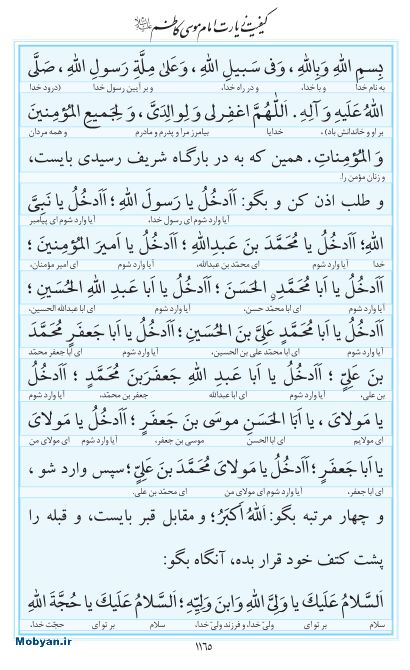 کیفیت زیارت امام موسی کاظم علیه السلام
بِسمِ اللهِ وَبِاللهِ، وَفی سَبیلِ اللهِ، وَعَلیٰ مِلَّةِ رَسولِ اللهِ، صَلَّی
به نام خدا و با خدا، و در راه خدا، و بر آیین رسول خدا (درود خدا
اللهُ عَلَیهِ وَ آلِهِ. اَللّٰهُمَّ اغفِرلی وَلِوالِدَیَّ، وَ لِجَمیعِ المُؤمِنینَ
بر او و خاندانش باد)، خدایا بیامرز مرا و پدرم و مادرم و همه مردان
وَ المُؤمِناتِ. همین که به در بارگاه شریف رسیدی بایست،
و زنان مؤمن را.
و طلب اذن کن و بگو: أَاَدخُلُ یا رَسولَ اللهِ؛ أَاَدخُلُ یا نَبِیَّ
آیا وارد شوم ای رسول خدا، آیا وارد شوم ای پیامبر
اللهِ؛ أَاَدخُلُ یا مُحَمَّدَ بنَ عَبدِاللهِ؛ أَاَدخُلُ یا اَمیرَ المُؤمِنینَ؛
خدا آیا وارد شوم ای محمّد بن عبدالله، آیا وارد شوم ای امیر مؤمنان،
أَاَدخُلُ یا اَبا مُحَمَّدٍ الحَسَنَ؛ أَاَدخُلُ یا اَبا عَبدِ اللهِ الحُسَینِ؛
آیا وارد شوم ای ابا محمّد حسن، آیا وارد شوم ای ابا عبدالله الحسین،
أَاَدخُلُ یا اَبا مُحَمَّدٍ عَلِیَّ بنَ الحُسَینِ؛ أَاَدخُلُ یا اَبا جَعفَرٍ مُحَمَّدَ
آیا وارد شوم ای ابا محمّد علی بن الحسین، آیا وارد شوم ای ابا جعفر محمّد
بنَ عَلِیٍّ؛ أَاَدخُلُ یا اَبا عَبدِ اللهِ جَعفَرَبنَ مُحَمَّدٍ؛ أَاَدخُلُ
بن علی، آیا وارد شوم ای ابا عبدالله جعفر بن محمّد، آیا وارد شوم
یا مَولایَ، یا أَبَا الحَسَنِ موسَی بنَ جَعفَرٍ؛ أَاَدخُلُ یا مَولایَ
ای مولایم ای ابا الحسن موسی بن جعفر، آیا وارد شوم ای مولای من
یا اَبا جَعفَرٍ؛ أَاَدخُلُ یا مَولایَ مُحَمَّدَ بنَ عَلِیٍّ؛ سپس وارد شو،
ای ابا جعفر، آیا وارد شوم ای مولای من ای محمّد بن علی.
و چهار مرتبه بگو: اَللهُ اَکبَرُ؛ و مقابل قبر بایست، و قبله را
پشت کتف خود قرار بده، آنگاه بگو:
اَلسَّلامُ عَلَیكَ یا وَلِیَّ اللهِ وَابنَ وَلِیِّهِ؛ اَلسَّلامُ عَلَیكَ یا حُجَّةَ اللهِ
سلام بر تو ای ولیّ خدا، و فرزند ولیّ خدا، سلام بر تو ای حجّت خدا،
Mobyan.ir
۱۱۶۵